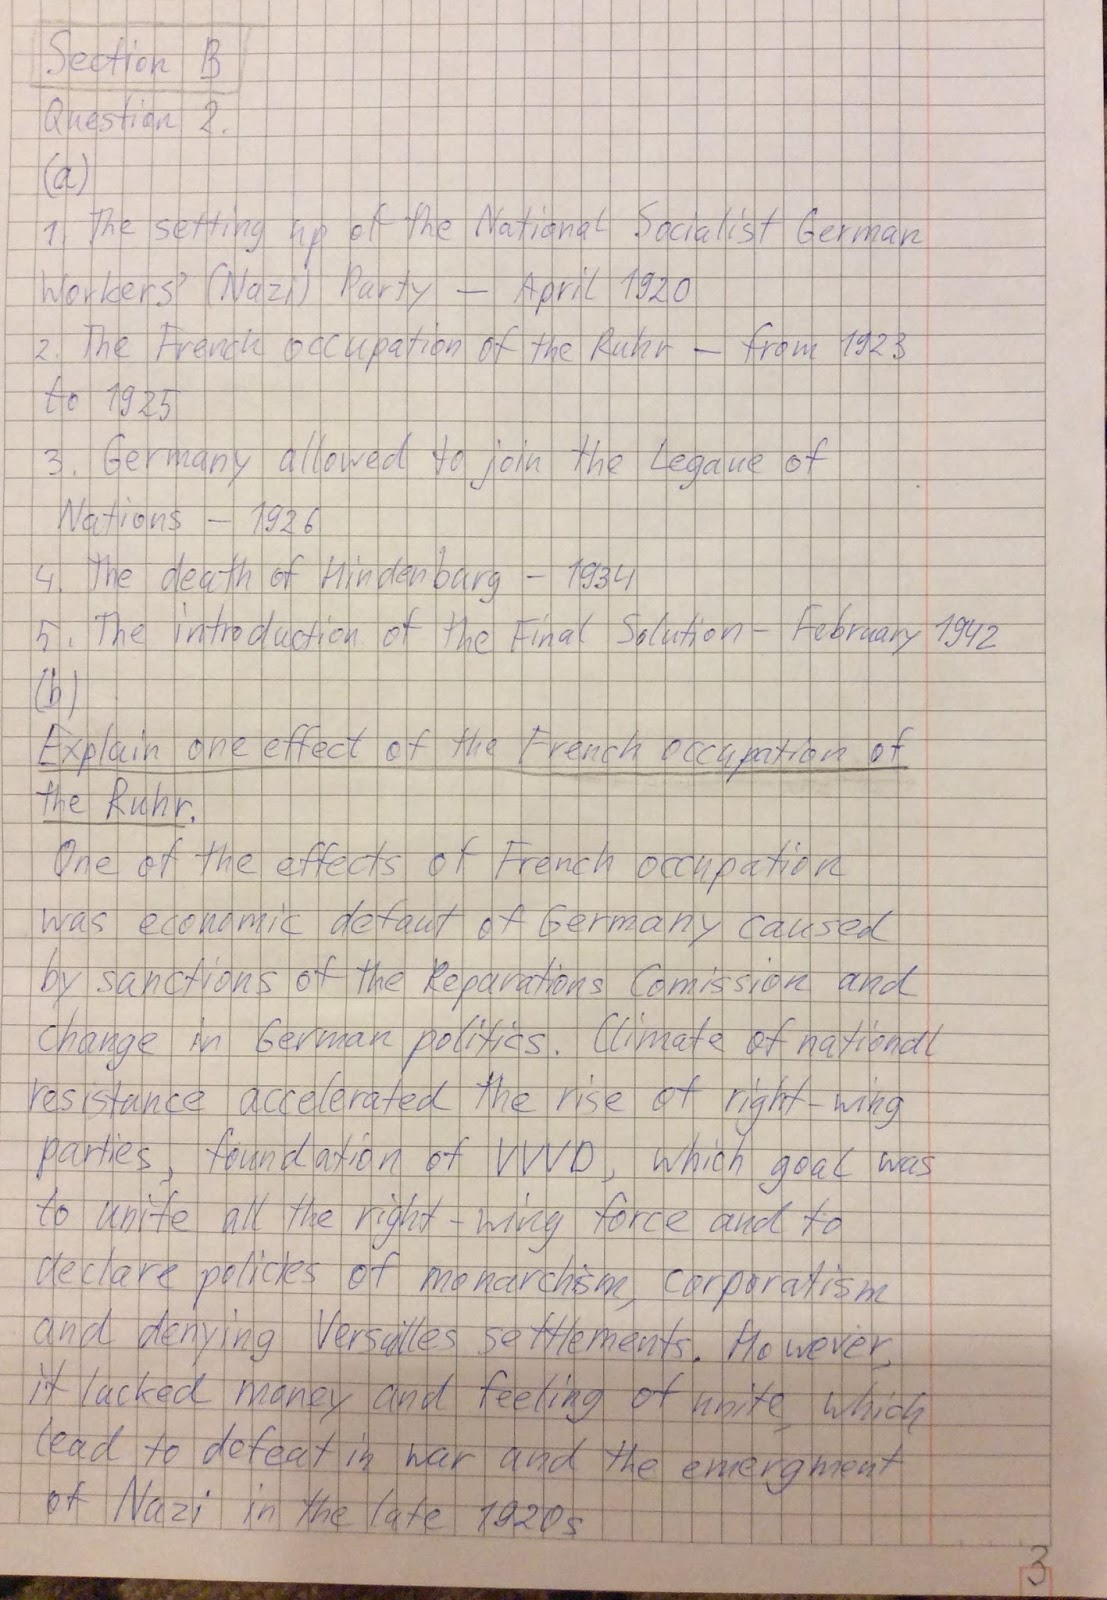 Section B
Question 2.
(a)
1. The setting up of the National Socialist German
Workers' (Nazi) Party - April 1920
2. The French occupation of the Ruhr - from 1923
to 1925
3. Germany allowed to join the Legaue of
Nations - 1926
4. The death of Hindenburg - 1934
5. The introduction of the Final Solution - February 1942
(b)
Explain one effect of the French occupation of
the Ruhr.
One of the effects of French occupation
was economic defaut of Germany caused
by sanctions of the Reparations Comission and
change in German politics. Climate of national
resistance accelerated the rise of right-wing
parties, foundation of VVVD, which goal was
to unite all the right-wing force and to
declare policies of monarchism, corporatism
and denying Versailles settlements. However,
it lacked money and feeling of unite, which
lead to defeat in war and the emergment
of Nazi in the late 1920s
3